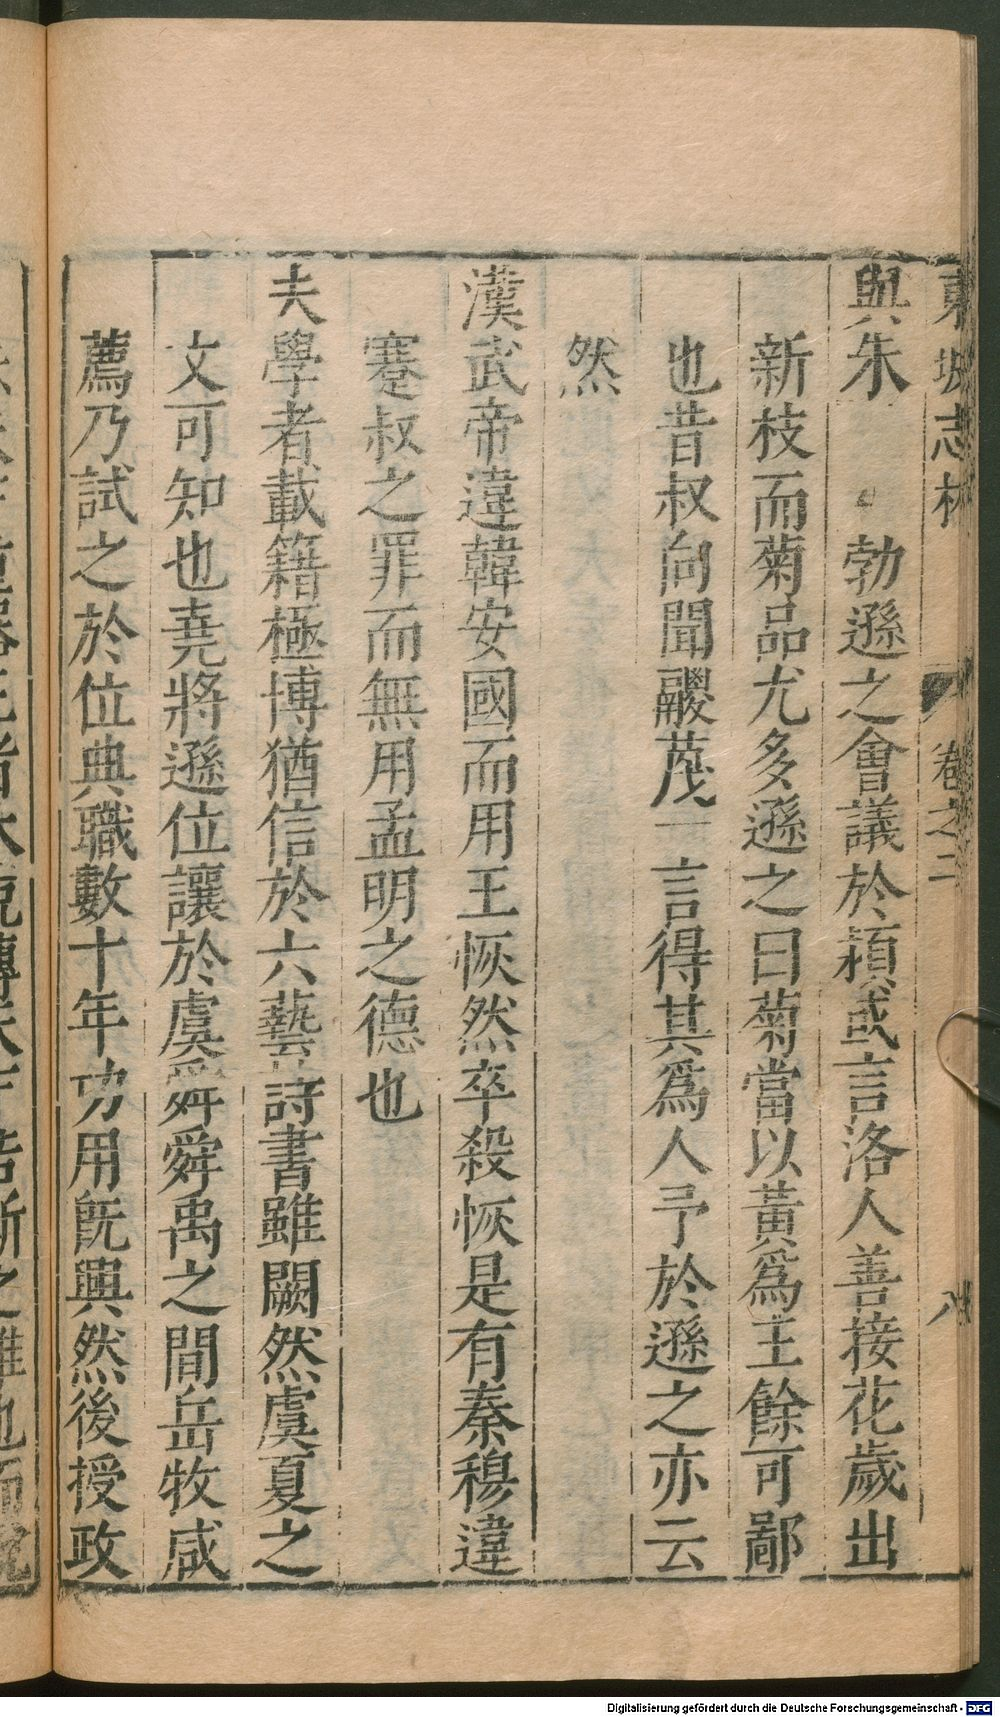 東坡志林 卷之二 八
與朱勃遜之會議於潁或言洛人善接花歲出
新枝而菊品尤多遜之曰菊當以黃爲王餘可鄙
也昔叔向聞鬷茂一言得其爲人予於遜之亦云
然
漢武帝違韓安國而用王恢然卒殺恢是有秦穆違
蹇叔之罪而無用孟明之德也
夫學者載籍極博猶信於六藝詩書雖闕然虞夏之
文可知也堯將遜位讓於虞舜舜禹之間岳牧咸
薦乃試之於位典職數十年功用旣興然後授政
Digitalisierung gefördert durch die Deutsche Forschungsgemeinschaft - DFG